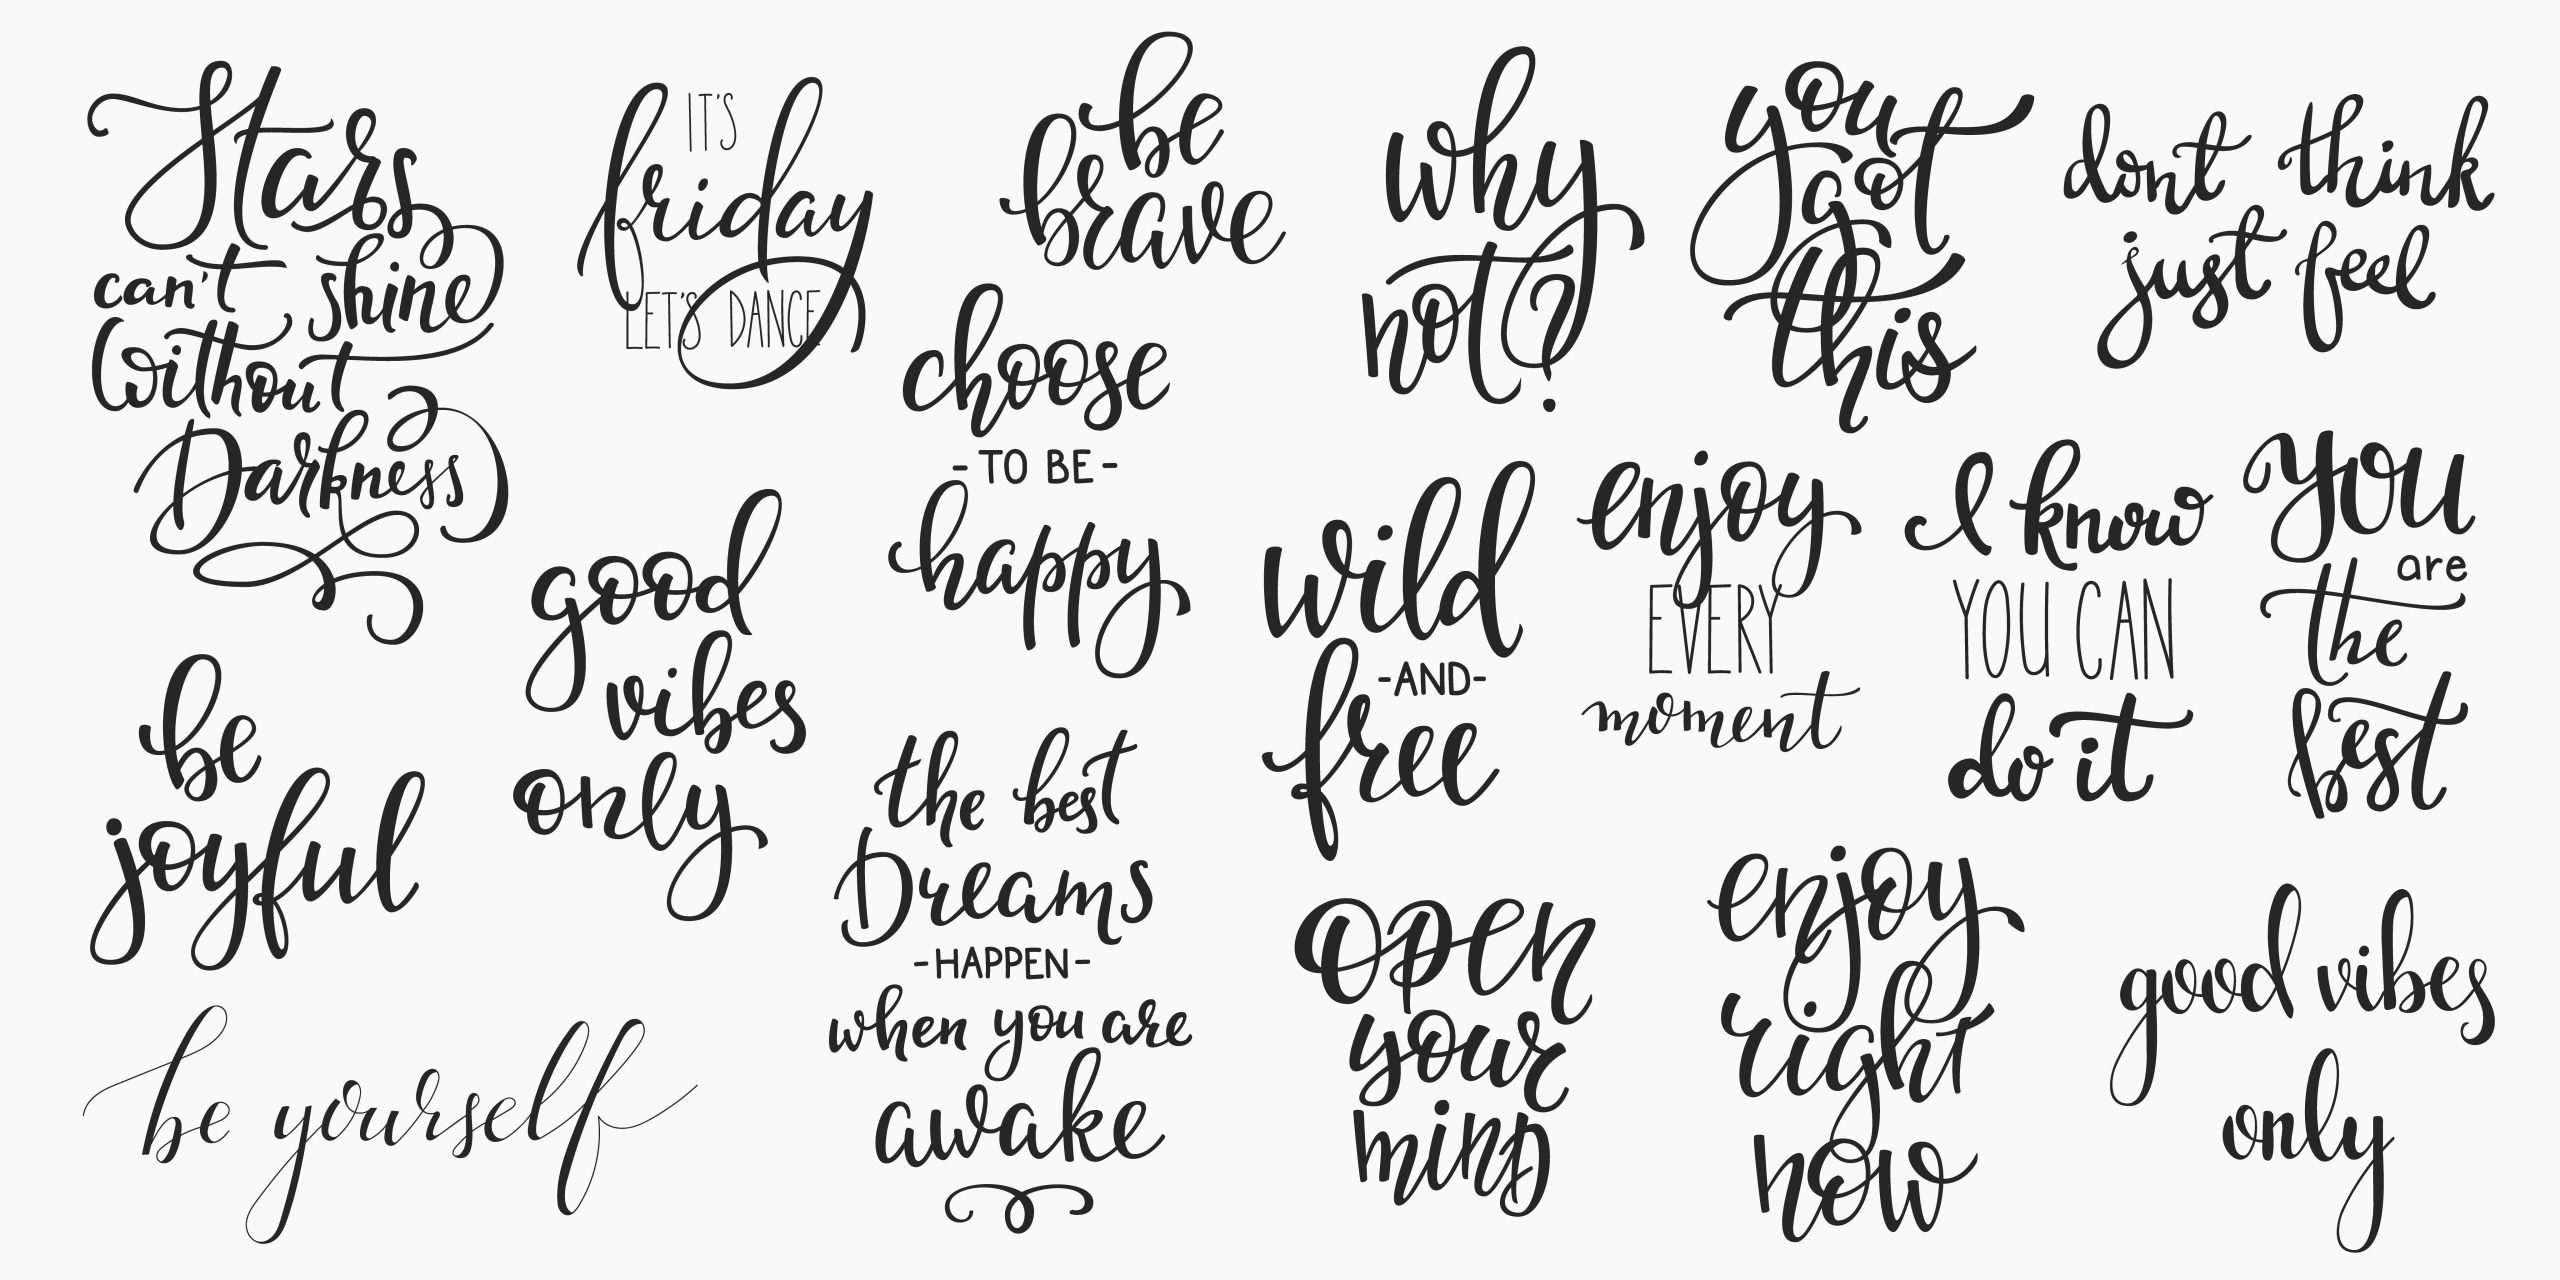 Stars
can't shine
Without
Darkness
IT'S
friday
LET'S DANCE
be
brave
why
not?
you
got
this
dont think
just feel
choose
- TO BE -
happy
good
vibes
only
wild
-AND-
free
enjoy
EVERY
moment
I know
YOU CAN
do it
you
are
the
best
be
joyful
the best
Dreams
-HAPPEN-
when you are
awake
open
your
mind
enjoy
right
now
good vibes
only
be yourself